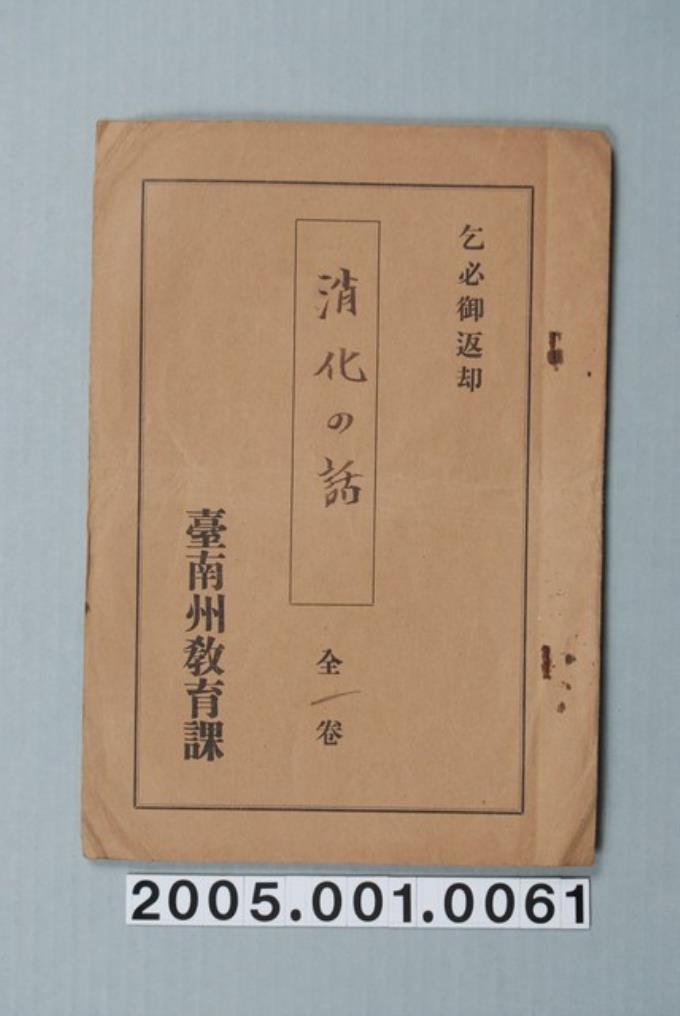 乞必御返却
消化の話
全一卷
臺南州教育課
2005.001.0061